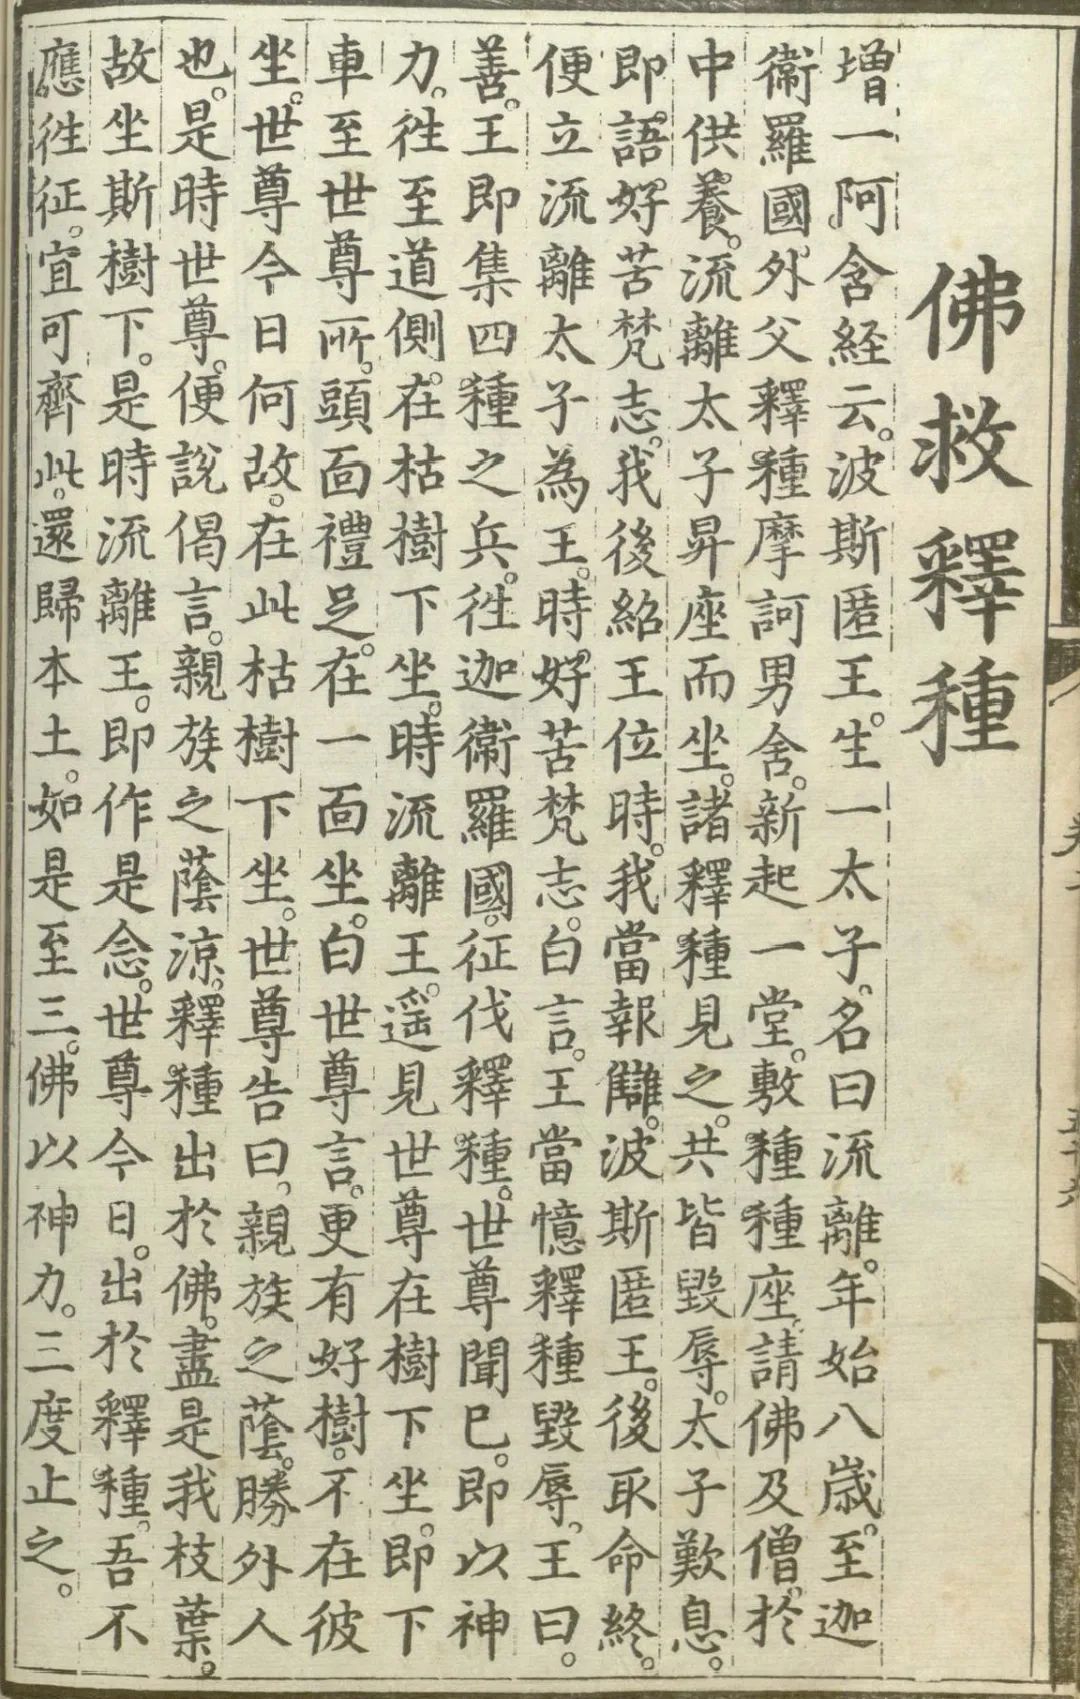 佛救釋種
增一阿含経云。波斯匿王。生一太子。名曰流離。年始八歲。至迦
衛羅國。外父釋種摩訶男舍。新起一堂。敷種種座。請佛及僧。於
中供養。流離太子昇座而坐。諸釋種見之。共皆毀辱。太子歎息。
即語好苦梵志。我後紹王位時。我當報讎。波斯匿王。後取命終。
便立流離太子為王。時好苦梵志。白言。王當憶釋種毀辱。王曰。
善。王即集四種之兵。徃迦衛羅國。征伐釋種。世尊聞已。即以神
力。徃至道側。在枯樹下坐。時流離王。遥見世尊在樹下坐。即下
車至世尊所。頭面禮足。在一面坐。白世尊言。更有好樹。不在彼
坐。世尊今日何故。在此枯樹下坐。世尊告曰。親族之蔭。勝外人
也。是時世尊。便說偈言。親族之蔭涼。釋種出於佛。盡是我枝葉。
故坐斯樹下。是時流離王。即作是念。世尊今日。出於釋種。吾不
應徃征。宜可齊此。還歸本土。如是至三。佛以神力。三度止之。